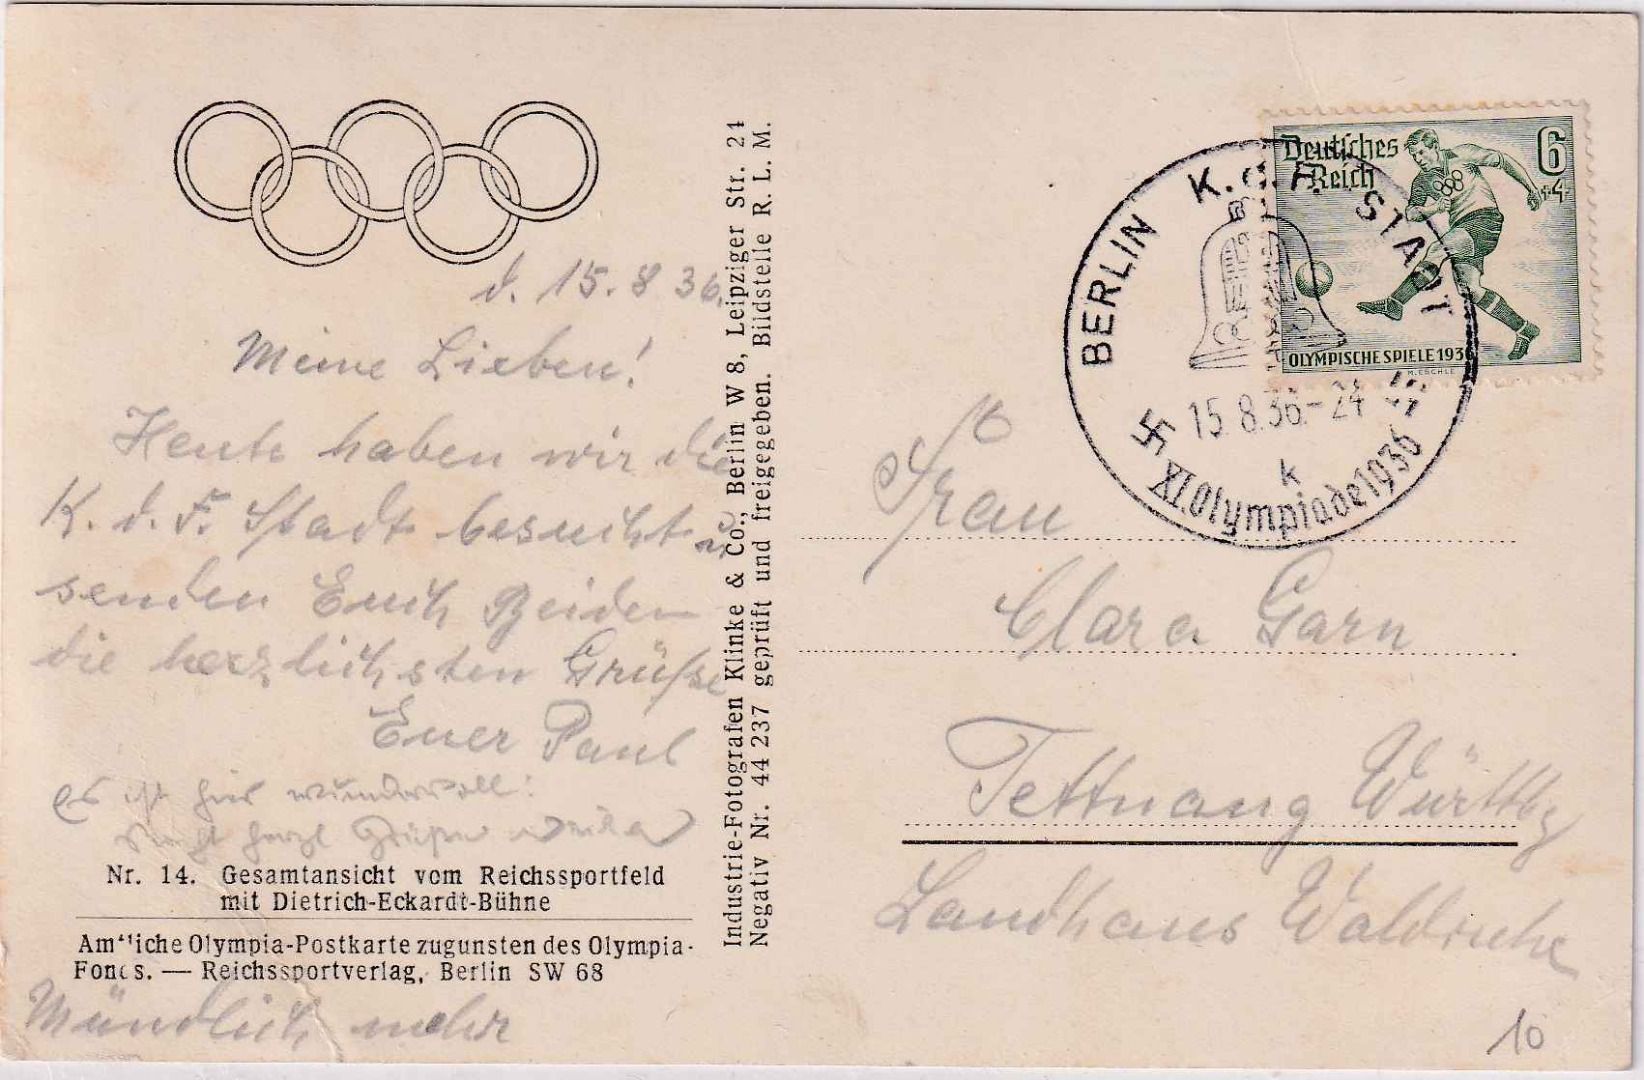 d. 15. 8 36.
Meine Lieben!
Heute haben wir die
K. d. F. Stadt besucht u
senden Euch Beiden
die herzlichsten Grüße
Euer Paul
es ist hier wundervoll!
herzl Grüße
Nr. 14. Gesamtansicht vom Reichssportfeld
mit Dietrich-Eckardt-Bühne
Amtliche Olympia-Postkarte zugunsten des Olympia-
Fonds. — Reichssportverlag, Berlin SW 68
Mündlich mehr
Industrie-Fotografen Klinke & Co., Berlin W 8, Leipziger Str. 21
Negativ Nr. 44 237 geprüft und freigegeben. Bildstelle R. L. M.
Deutsches
Reich
6
+4
OLYMPISCHE SPIELE 1936
M. ESCHLE
BERLIN K.d.F. STADT
15.8.36-24
k
XI. Olympiade 1936
Frau
Clara Garn
Tettnang Württbg
Landhaus Waldruhe
10